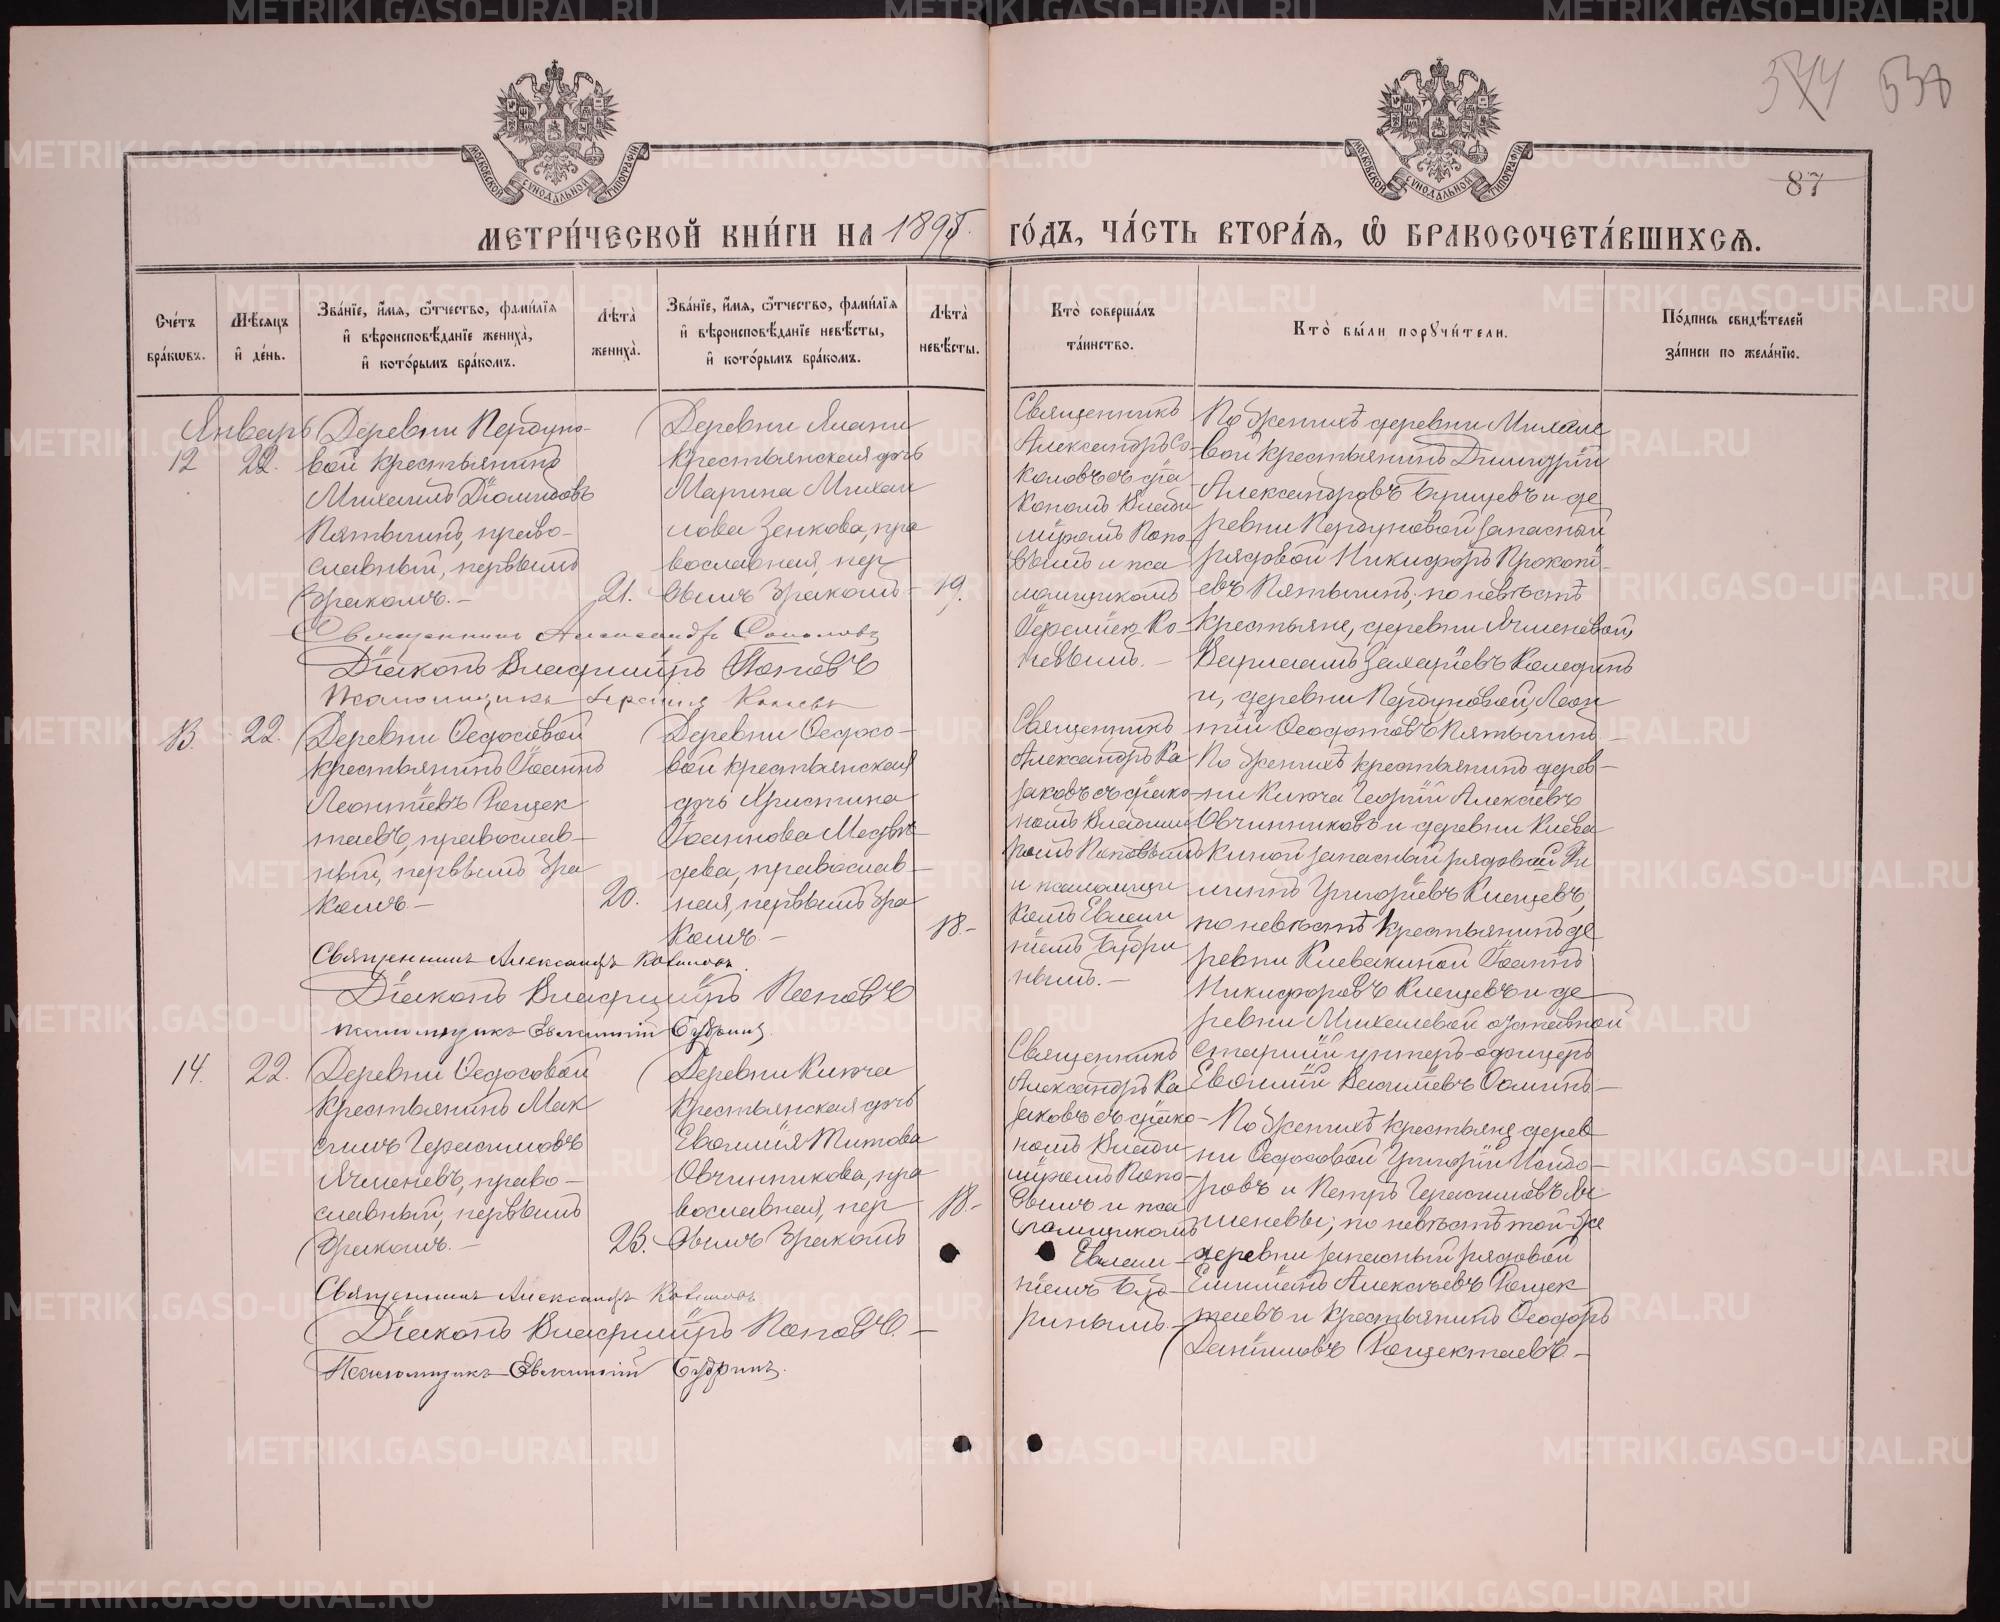 544 538
87
МОСКОВСКОЙ СѴНОДАЛЬНОЙ ТИПОГРАФІИ
МОСКОВСКОЙ СѴНОДАЛЬНОЙ ТИПОГРАФІИ
МЕТРИ́ЧЕСКОЙ КНИ́ГИ НА 1898 ГО́ДЪ, ЧА́СТЬ ВТОРА́Я, Ѽ БРАКОСОЧЕТА́ВШИХСЯ.
Сче́тъ бра́кѡвъ.
Мѣ́сяцъ и҆ де́нь.
Зва́нїе, и҆́мя, ѻ҆́тчество, фами́лїя и҆ вѣроисповѣ́данїе жениха̀, и҆ кото́рымъ бра́комъ.
Лѣ́та жениха̀.
Зва́нїе, и҆́мя, ѻ҆́тчество, фами́лїя и҆ вѣроисповѣ́данїе невѣ́сты, и҆ кото́рымъ бра́комъ.
Лѣ́та невѣ́сты.
Кто̀ соверша́лъ та́инство.
Кто̀ бы́ли порꙋчи́тели.
По́дпись свидѣ́телей за́писи по жела́нїю.
Январь
12
22.
Деревни Пердуно-
вой крестьянинъ
Михаилъ Діомидовъ
Пятыгинъ, право-
славный, первымъ
бракомъ.-
21.
Деревни
крестьянская дочь
Марина Михаи
лова Зенкова, пра
вославная, пер
вымъ бракомъ-
19.
Священникъ
Александръ Со
коловъ съ діа
кономъ Влади
міромъ Попо-
вымъ и пса
ломщикомъ
Ко-
-
По женихѣ деревни Михале
вой крестьянинъ Димитрій
Александровъ и де
ревни Пердуновой запасный
рядовой Никифоръ Прокопі-
евъ Пятыгинъ; по невѣстѣ
крестьяне, деревни Ячменевой,
Варлаамъ Захаріевъ
и, деревни Пердуновой, Леон
тій Ѳеодотовъ Пятыгинъ.-
Священникъ Александръ Соколовъ
Діаконъ Владиміръ Поповъ
Псаломщикъ
13.
22.
Деревни Ѳедосовой
крестьянинъ Іоаннъ
Леонтіевъ Рощек
таевъ, православ-
ный, первымъ бра
комъ.-
20.
Деревни Ѳедосо-
вой крестьянская
дочь Христина
Іоаннова Медвѣ-
дева, православ-
ная, первымъ бра
комъ.-
18.-
Священникъ
Александръ Ка
заковъ съ діако
номъ Влади
міромъ Поповымъ
и псаломщи
комъ Евлам
піемъ Будри
нымъ.-
По женихѣ крестьянинъ дерев-
ни Ключа Георгій Алексіевъ
Овчинниковъ и деревни Клева
киной запасный рядовой Фи
липпъ Григоріевъ Клещевъ,
по невѣстѣ крестьянинъ де
ревни Клевакиной Іоаннъ
Никифоровъ Клещевъ и де
ревни Михалевой отставной
старшій унтеръ-офицеръ
Евѳимій Василіевъ
Священникъ Александръ Казаковъ.
Діаконъ Владиміръ Поповъ
Псаломщикъ Евлампій Будринъ
14.
22.
Деревни Ѳедосовой
крестьянинъ Мак
симъ Герасимовъ
Ячменевъ, право-
славный, первымъ
бракомъ.-
23.
Деревни Ключа
крестьянская дочь
Евѳимія Титова
Овчинникова, пра
вославная, пер
вымъ бракомъ
18.-
Священникъ
Александръ Ка
заковъ съ діако-
номъ Влади-
міромъ Попо-
вымъ и пса
ломщикомъ
Евлам-
піемъ Буд-
ринымъ.-
По женихѣ крестьяне дерев
ни Ѳедосовой Григорій Исидо-
ровъ и Петръ Герасимовъ Яч
меневы; по невѣстѣ той-же
деревни запасный рядовой
Алексѣевъ Рощек
таевъ и крестьянинъ Ѳеодоръ
Даніиловъ Рощектаевъ-
Священникъ Александръ Казаковъ
Діаконъ Владиміръ Поповъ.-
Псаломщикъ Евлампій Будринъ.
METRIKI.GASO-URAL.RU